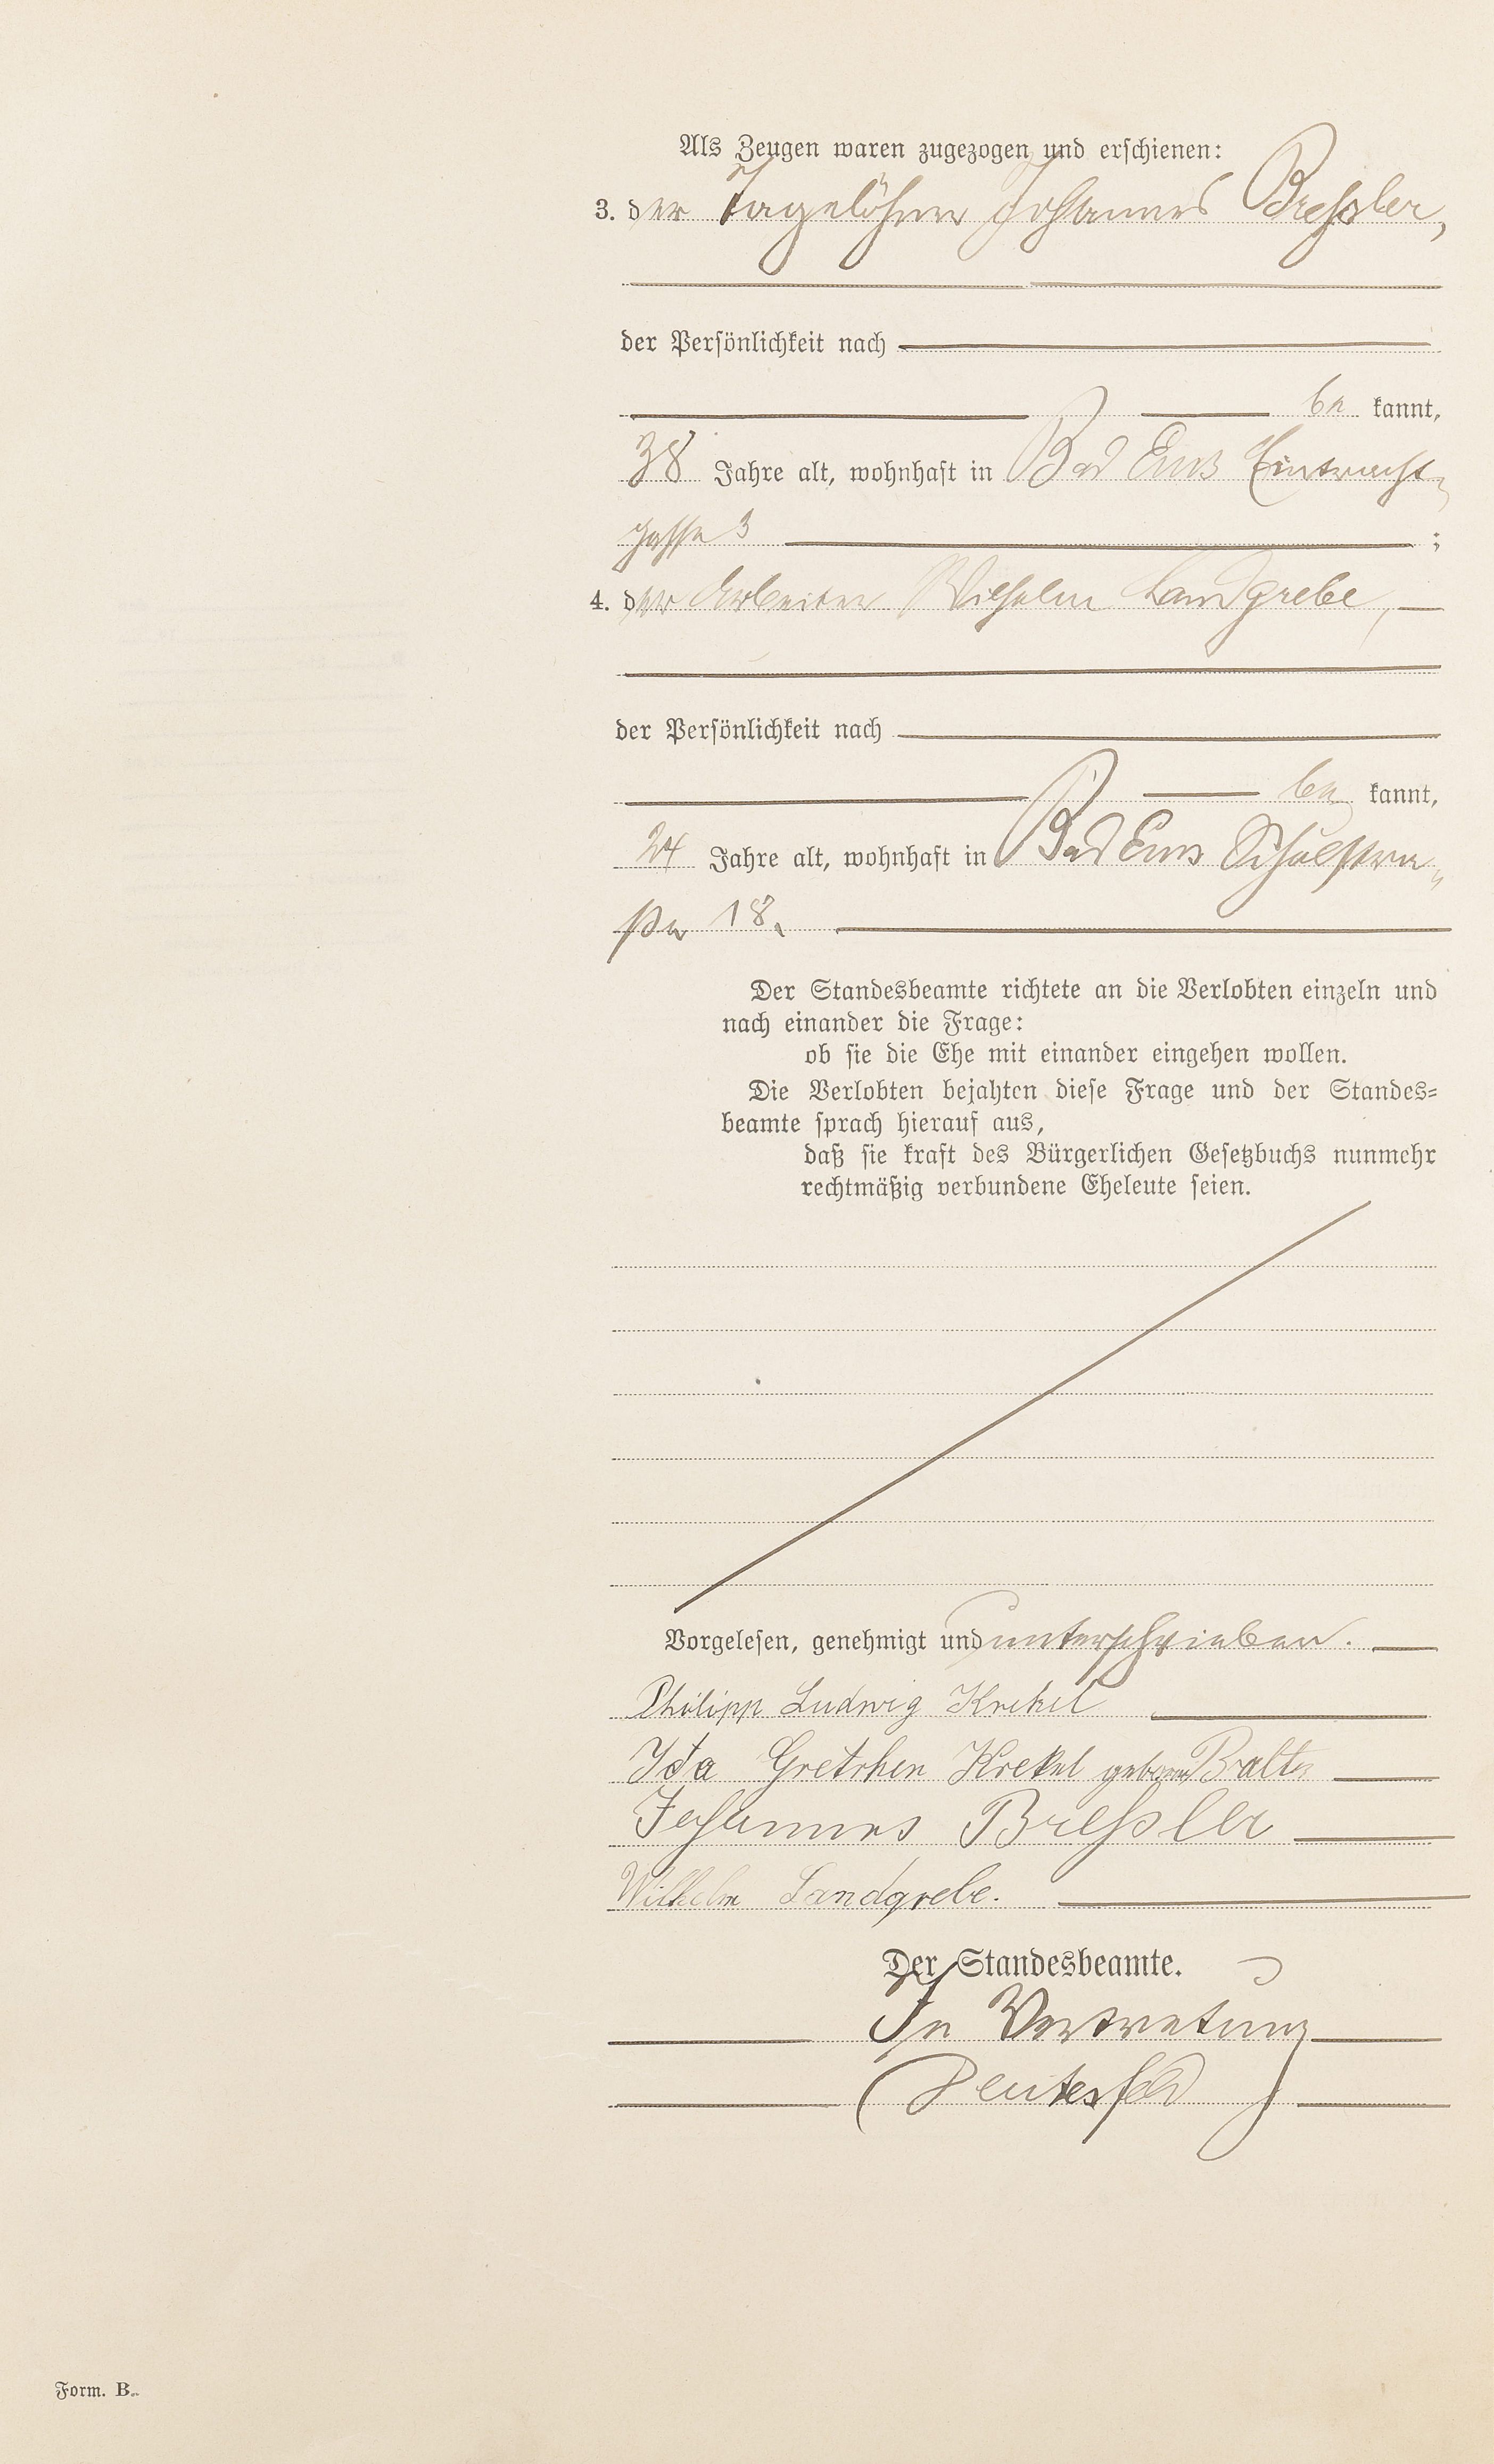 Als Zeugen waren zugezogen und erschienen:
3. der Tagelöhner Johannes Breßler,
der Persönlichkeit nach
be kannt,
38 Jahre alt, wohnhaft in Bad Ems Eintracht-
gasse 3 ;
4. der Arbeiter Wilhelm Landgrebe,
der Persönlichkeit nach
be kannt,
24 Jahre alt, wohnhaft in Bad Ems Schulstra-
ße 18.
Der Standesbeamte richtete an die Verlobten einzeln und
nach einander die Frage:
ob sie die Ehe mit einander eingehen wollen.
Die Verlobten bejahten diese Frage und der Standes-
beamte sprach hierauf aus,
daß sie kraft des Bürgerlichen Gesetzbuchs nunmehr
rechtmäßig verbundene Eheleute seien.
Vorgelesen, genehmigt und unterschrieben.
Philipp Ludwig Krekel
Ida Gretchen Krekel geborene
Johannes Breßler
Wilhelm Landgrebe.
Der Standesbeamte.
In Vertretung